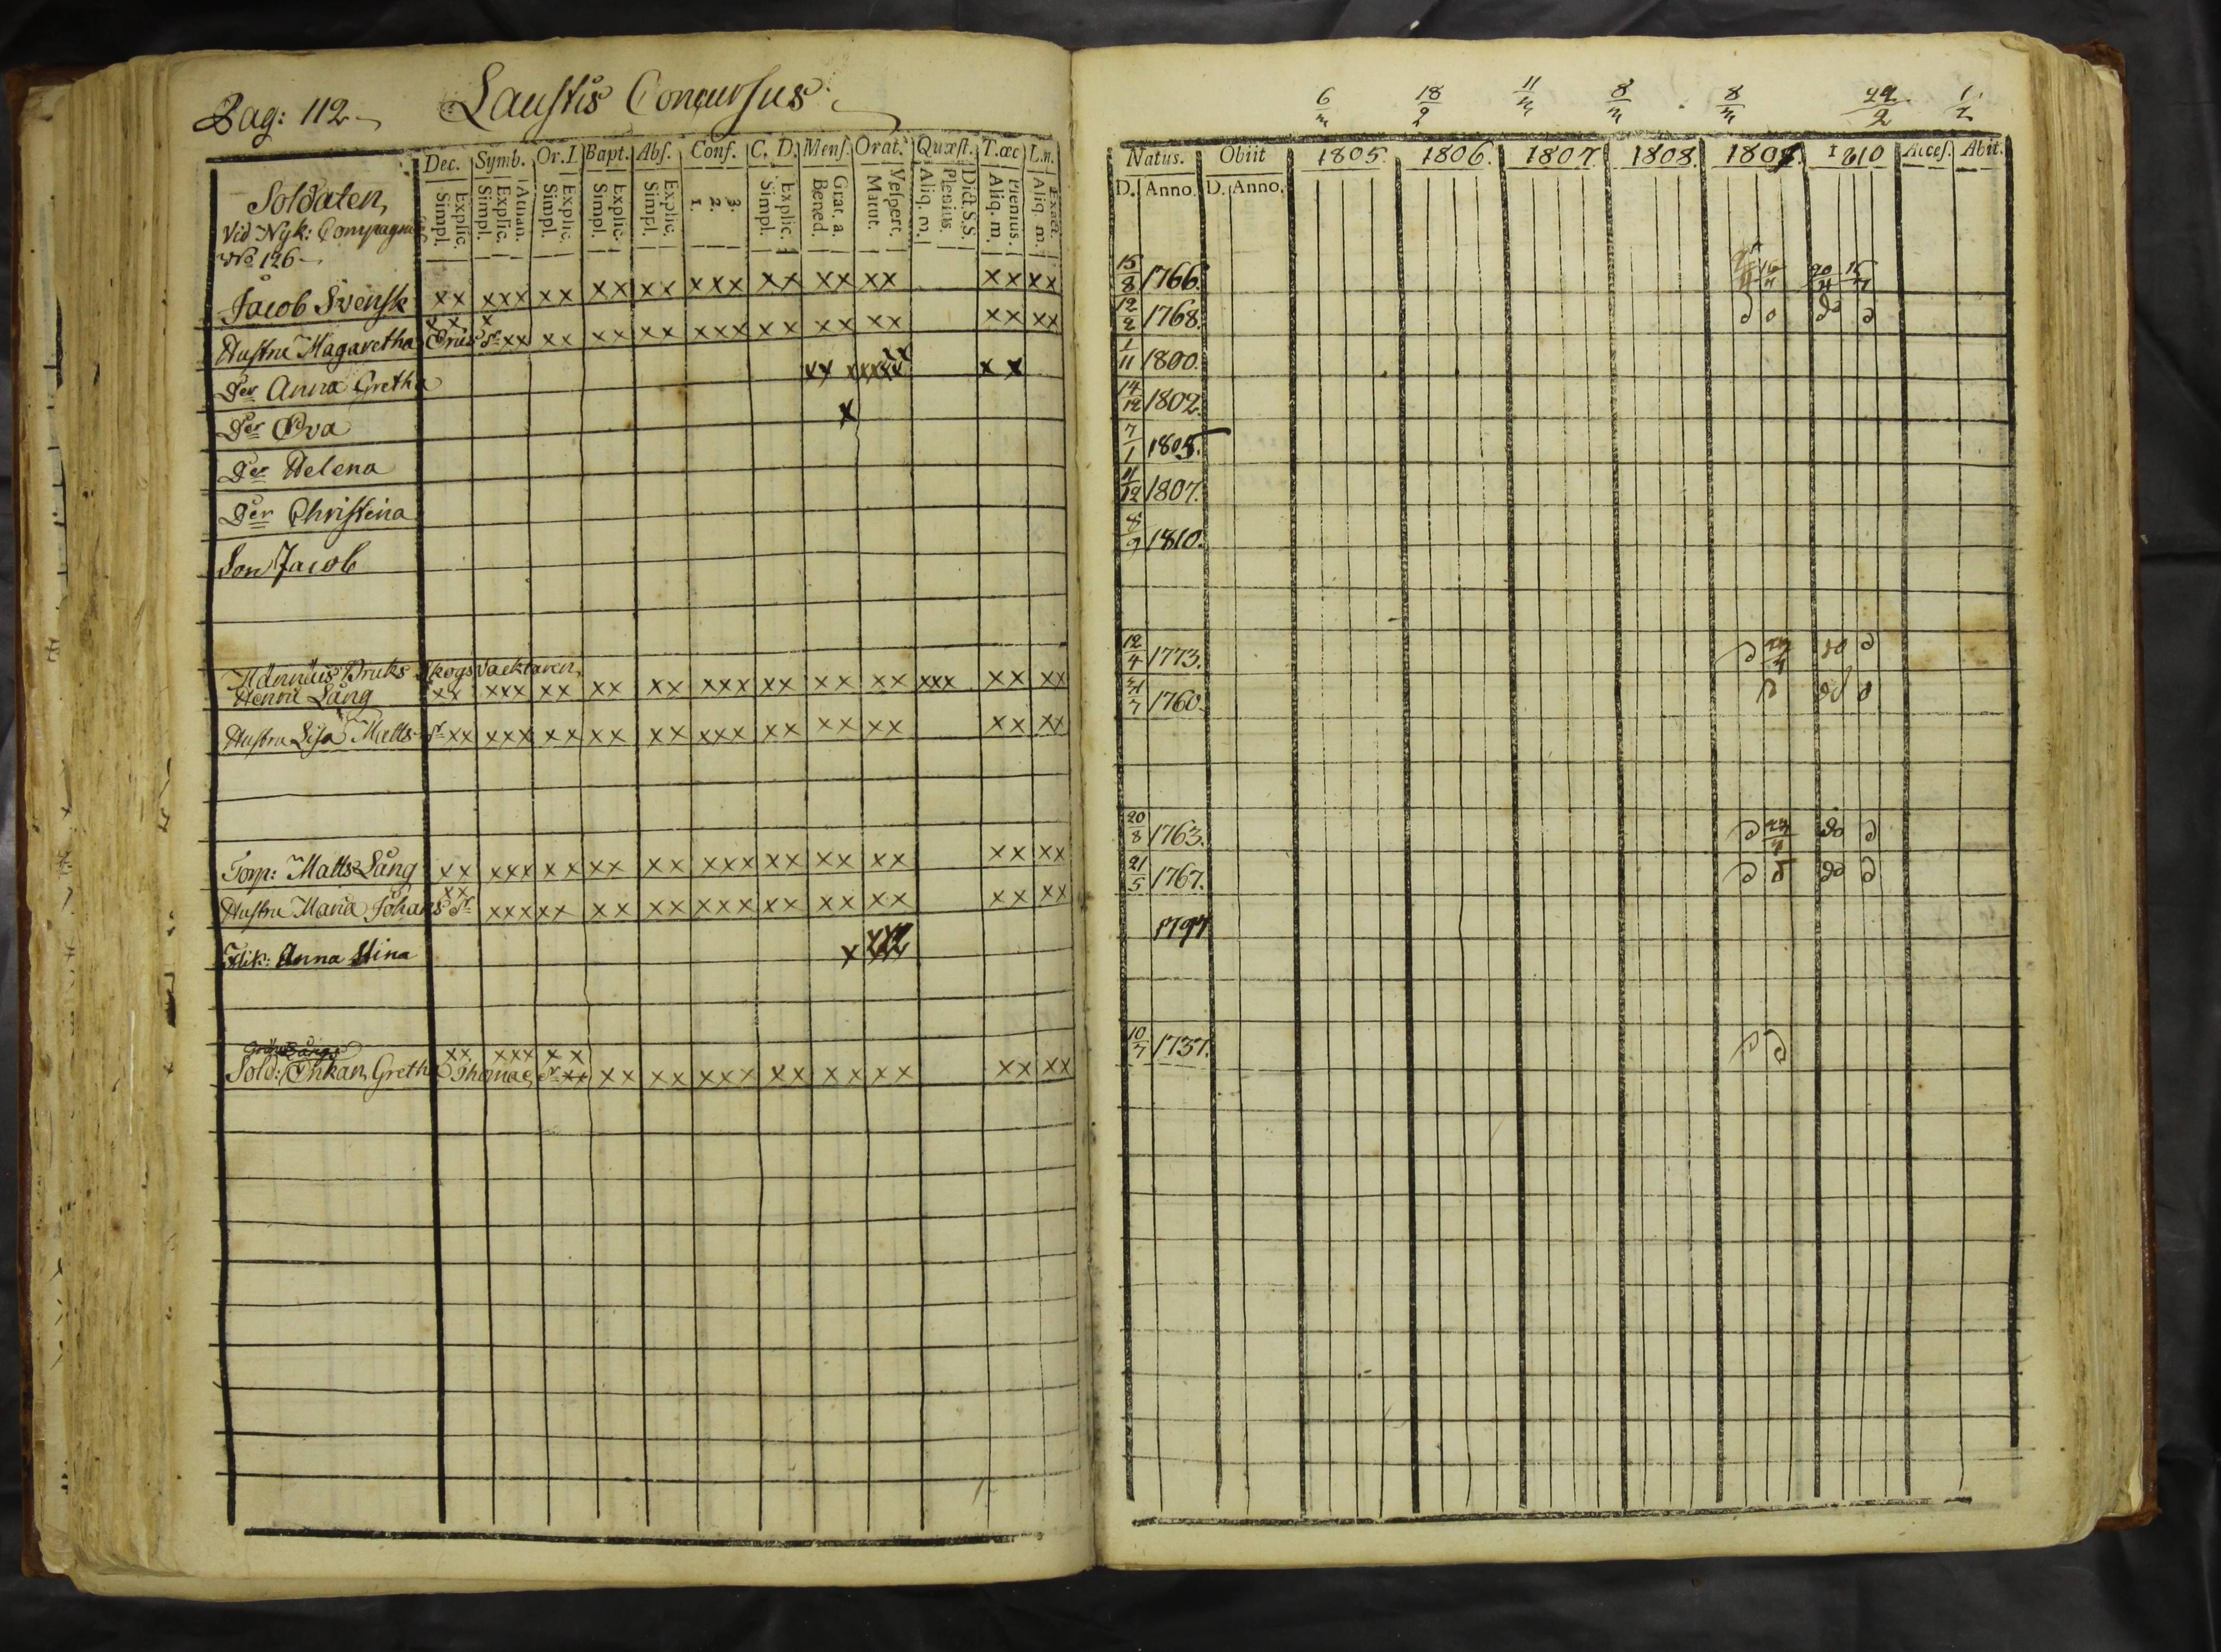 Pag: 112
Laustis Concursus
Dec. Symb. Or. I Bapt. Abs. Conf. C. D. Mens. Orat. Quæst. T. œc L. n.
Explic. Simpl. Athan. Explic. Simpl. Explic. Simpl. Explic. Simpl. Explic. Simpl. 3. 2. 1. Explic. Simpl. Grat. a. Bened. Vespert. Matut. Dict. S.S. Plenius. Aliq. m. Plenius. Aliq. m. Exact. Aliq. m.
Soldaten,
Vid Nyk: Compagnie
No 126
Jacob Svensk xx xxx xx xx xx xxx xx xx xx xx xx
xx x
Hustru Magaretha Ericsdr xx xx xx xx xxx xx xx xx xx xx
Der Anna Gretha xx xx
Der Eva x
Der Helena
Der Christina
Son Jacob
Skogsvacktaren,
Henric Lång xx xxx xx xx xx xxx xx xx xx xxx xx xx
Hustru Lisa Matts dr xx xxx xx xx xx xxx xx xx xx xx xx
Torp: Matts Lång xx xxx xx xx xx xxx xx xx xx xx xx
xx
Hustru Maria Johans dr xxx xx xx xx xxx xx xx xx xx xx
Flik: Anna Stina x
xx xxx xx
Sold: Enkan, Greth Thomae dr xx xx xx xxx xx xx xx xx xx
6/m 18/2 11/m 8/m 8/m 22/2 1/2
Natus. Obiit 1805. 1806. 1807. 1808. 1809. 1810 Acces. Abit.
D. Anno. D. Anno.
15/8 1766.
12/2 1768.
1/11 1800.
14/12 1802.
7/1 1805.
11/12 1807.
8/9 1810.
12/4 1773.
1760.
20/8 1763.
21/5 1767.
1797
10/7 1737.